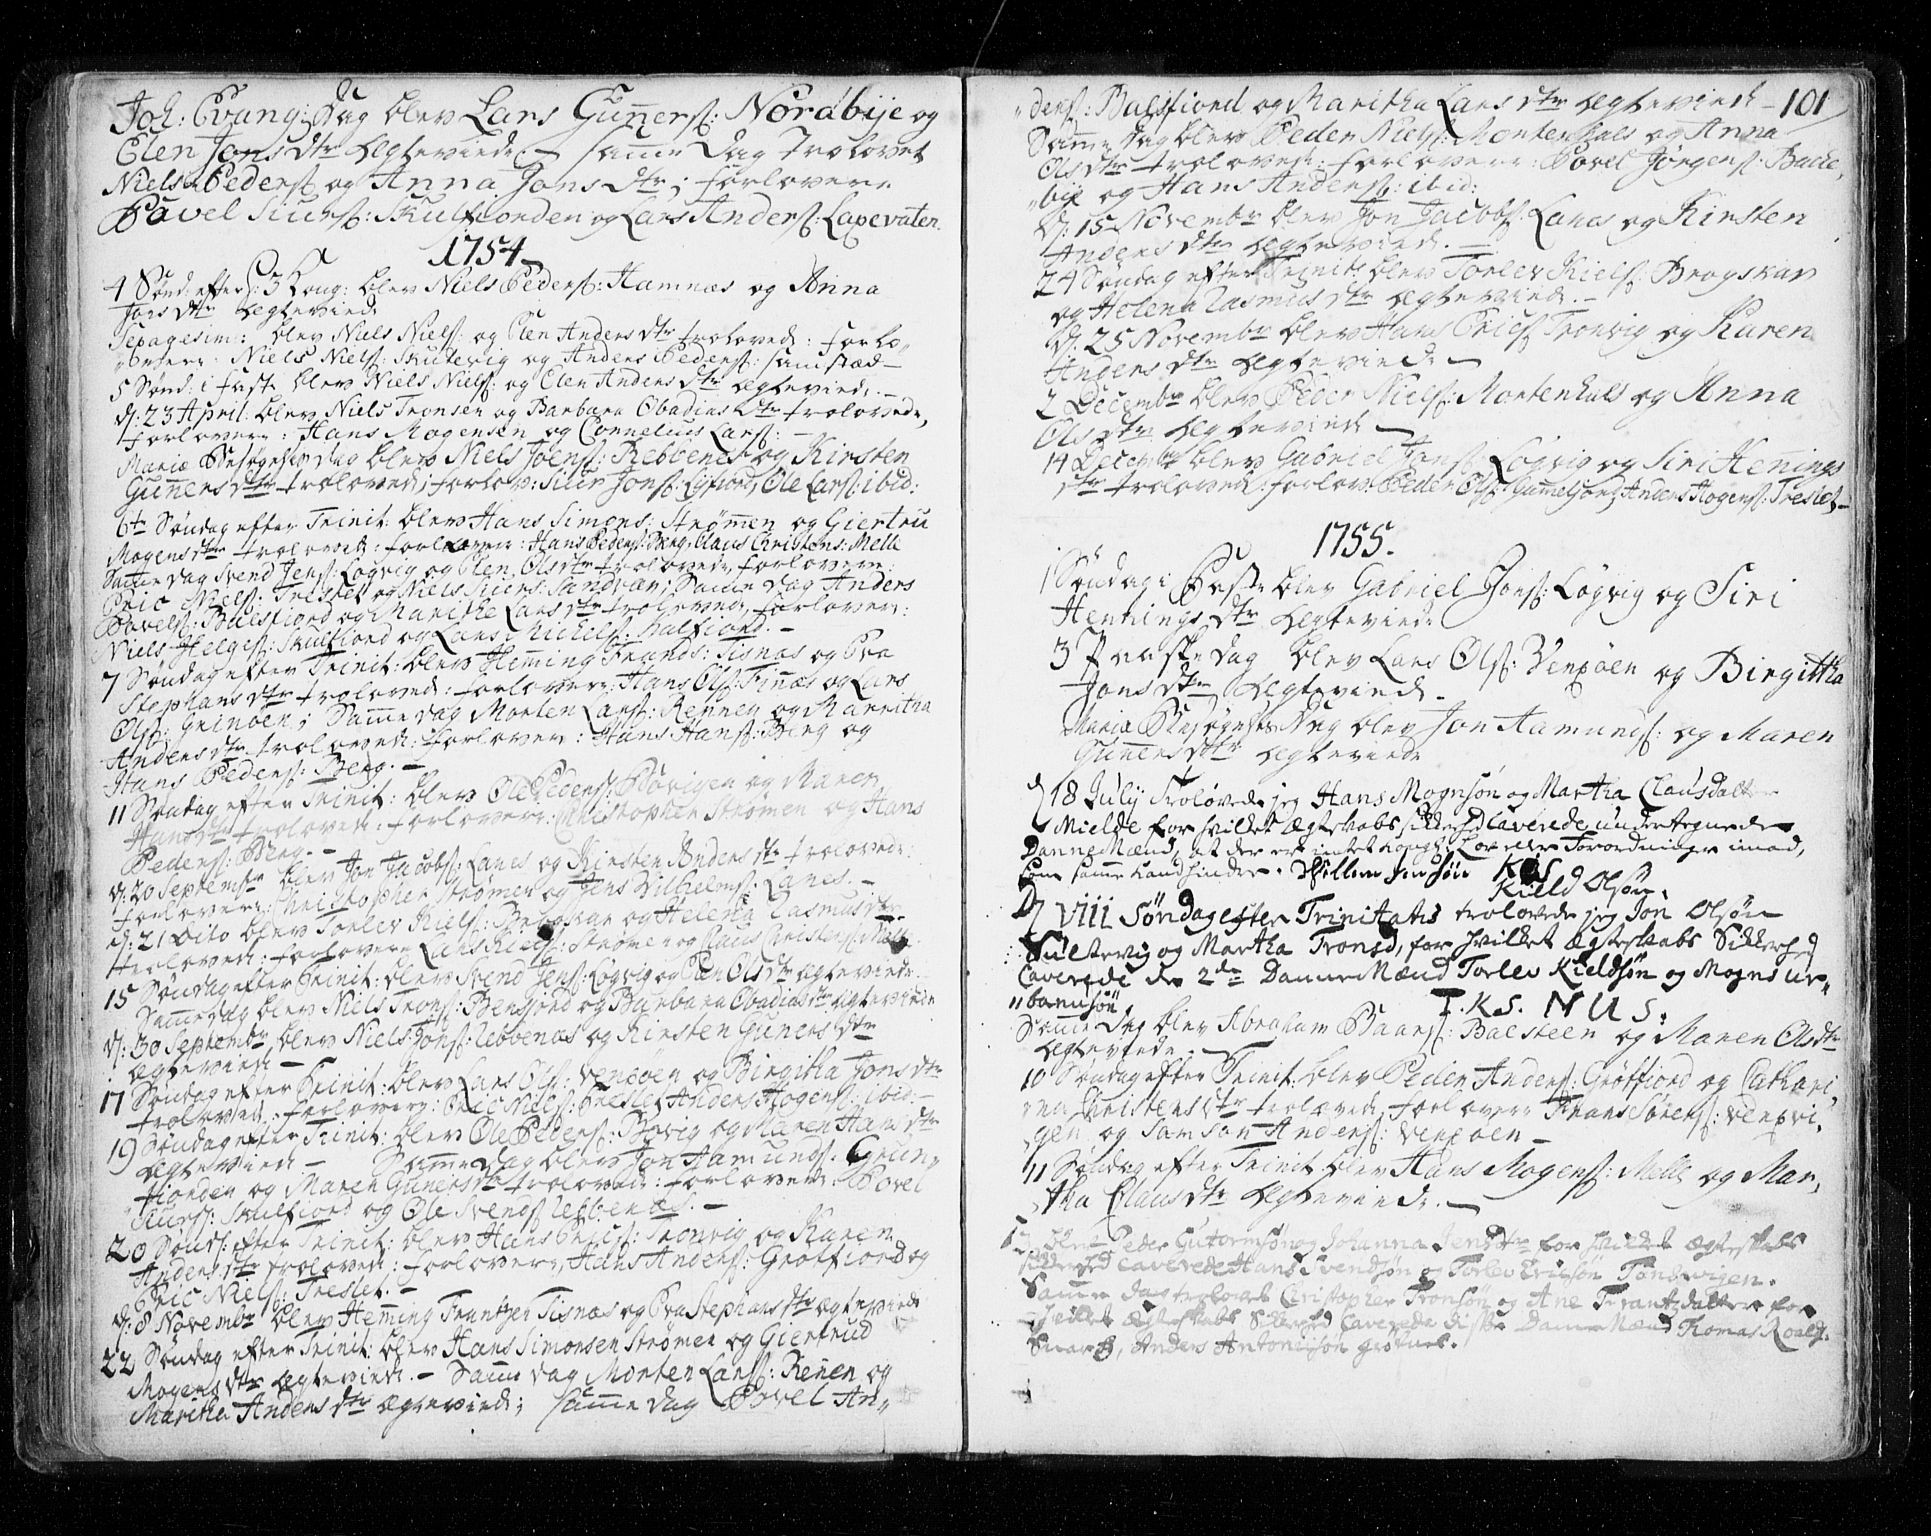 Joh: Evang: Dag blev Lars Gunners: Nordbye og
Elen Jons dtr ægteviede — samme Dag Trolovet
Niels Peders: og Anna Jons dtr; forlovere
Povel Siurs: Skulfiorden og Lars Anders: Laxevaten.
1754
4 Sønd: efter H: 3 Kong: blev Niels Peders: Hamnæs og Anna
Jons dtr ægteviede
Sepagesim: blev Niels Niels: og Elen Anders dtr trolovede: forlo„
„vere: Niels Niels: Skutevig og Anders Peders: samstæd —
5 Sønd: i faste blev Niels Niels: og Elen Anders dtr ægteviede. —
d: 23 April: blev Niels Tronsen og Barbara Obadias dtr trolovede,
forlovere: Hans Mogensen og Cornelius Lars: —
Mariæ Besøgelses dag blev Niels Joens: Rebbenes og Kirsten
Gunners dtr trolovede; forlov: Siur Jons: Ole Lars: ibid:
6te Søndag efter Trinit: blev Hans Simons: Strømen og Giertru
Mogens dtr trolovede: forlovere: Hans Peders: Berg, Claus Christens: Melle
Samme dag Svend Jens: Løgvig og Elen Olsdtr trolovede, forlovere:
Eric Niels: Treslet og Niels Siurs: Sandvær; Samme dag Anders
Povels: Balsfiord og Marithe Lars dtr trolovede, forlovere:
Niels Helges: Skulfiord og Lars Michels: Kalfiord. —
7 Søndag efter Trinit: blev Hemming Frands: Tisnæs og Eva
Stephans dtr trolovede: forlovere: Hans Ols: Finnæs og Lars
Ols: Grinøen; Samme dag Morten Lars: Rennen og Maritha
Anders dtr trolovede: forlovere: Hans Hans: Berg og
Hans Peders: Berg. —
11 Søndag efter Trinit: blev Ole Peders: Bovigen og Maren
Hans dtr trolovede: forlovere: Christopher Strømen og Hans
Peders: Berg. —
d: 20 Septembr blev Jon Jacobs: Lanes og Kirsten Anders dtr trolovede:
forlovere: Christopher Strømen og Jens Vilhelms: Lanes. —
d: 21 Dito blev Torlev Kiels: Brogskar og Helena Rasmus dtr
trolovede: forlovere Lars Kiels: Strømen og Claus Christens: Melle
15 Søndag efter Trinit: blev Svend Jens: Løgvig og Elen Ols dtr ægteviede.
Samme dag blev Niels Trons: Bensjord og Barbara Obadias dtr ægteviede
d: 30 Septembr blev Niels Jons: Rebbenes og Kirsten Guners dtr
ægteviede —
17 Søndag efter Trinit: blev Lars Ols: Vengøen og Birgitha Jons dtr
trolovede: forlovere: Eric Niels: Treslet Anders Hogens: ibid: —
19 Søndag efter Trinit: blev Ole Peders: Bovig og Maren Hans dtr
ægteviede — Samme dag blev Jon Aamunds: Grun„
„fiorden og Maren Guners dtr trolovede: forlovere: Povel
Siurs: Skulfiord og Ole Svends: Rebbenes. —
20 Sønd: efter Trinit: blev Hans Erics: Tronvig og Karen
Anders dtr trolovede: forlovere, Hans Anders: Grøtfiord og
Eric Niels: Treslet. —
d: 8 Novembr blev Heming Frantzen Tisnæs og Eva Stephans dtr ægteviede
22 Søndag efter Trinit: blev Hans Simonsen Strømen og Giertrud
Mogens dtr ægteviede. — Samme dag Morten Lars: Renen og
Maritha Anders dtr ægteviede; samme dag Povel An„
„ders: Balsfiord og Maritha Lars dtr ægteviede — 101
Samme dag blev Peder Niels: Mortenhals og Anna
Ols dtr trolovede: forlovere: Povel Jørgens: Bache„
„bye og Hans Anders: ibid:
d: 15 Novembr blev Jon Jacobs: Lanes og Kirsten
Anders dtr ægteviede. —
24 Søndag efter Trinit: blev Torlev Kiels: Brogskar
og Helena Rasmus dtr ægteviede. —
d: 25 Novembr blev Hans Erics: Tronvig og Karen
Anders dtr ægteviede —
2 Decembr blev Peder Niels: Mortenhals og Anna
Ols dtr ægteviede —
14 Decembr blev Gabriel Jons: Løgvig og Siri Hennings
dtr trolovede: forlov: Peder Ols: Gammelgaard, Anders Hogens: Treslet —
1755.
1 Søndag i Faste blev Gabriel Jons: Løgvig og Siri
Hennings dtr ægteviede
3 Paaske dag blev Lars Ols: Vengøen og Birgittha
Jons dtr ægteviede —
Mariæ Besøgelses Dag blev Jon Aamunds: og Maren
Gunnersdtr ægteviede
d 18 July Troloved jeg Hans Mognsøn og Martha Clausdatter
Mielde for hvilket Ægteskabs sikkerhed Caverede undertegnede
DanneMænd, at der er intet Kongl: Lov eller Forordninger imod,
som samme kand hindre. Willum Jensøn KOS
Kield Olsøn.
D VIII Søndag efter Trinitatis trolovede jeg Jon Olsøn
Sultevig og Martha Tronsd, for hvilket Ægteskabs Sikkerhed
Caverede de 2de DanneMænd Torlev Kieldsøn og Mogns Ur„
„bannsøn T.K.S. M U S.
Samme dag blev Abraham Baars: Balsteen og Maren Olsdtr
ægteviede. —
10 Søndag efter Trinit: blev Peder Anders: Grøtfiord og Cathari„
„na Christens dtr trolovede, forlovere Frans Sørens: Vengvi„
„gen og Samson Anders: Vengøen —
11 Søndag efter Trinit: blev Hans Mogens: Melle og Mar„
„tha Claus dtr ægteviede. —
blev Peder Gutormsøn og Johanna Jensdtr for hvilket Ægteskabs
sikkerhed Caverede Hans Svendsøn og Torlev Ericsøn Tønsvigen.
Samme dag trolovet Christopher Tronsøn og Ane Frantzdatter for
hvilket Ægteskabs Sikkerhed Caverede disse DanneMænd Thomas Roald:
Anders Antonisøn grøtnes.